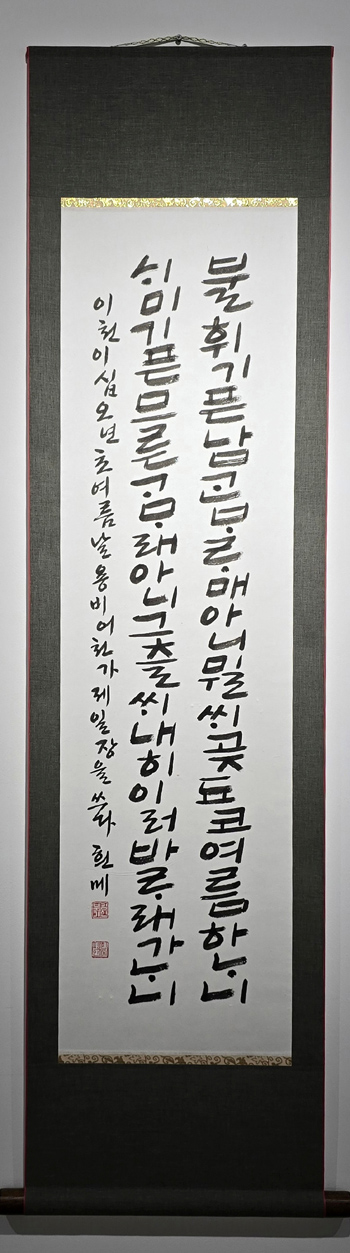 불휘기픈남ᄀᆞᆫᄇᆞᄅᆞ매아니뮐ᄊᆡ곶됴코여름하ᄂᆞ니
ᄉᆡ미기픈므른ᄀᆞᄆᆞ래아니그츨ᄊᆡ내히이러바ᄅᆞ래가ᄂᆞ니
이천이십오년초여름날용비어천가제일장을쓰다 흰메